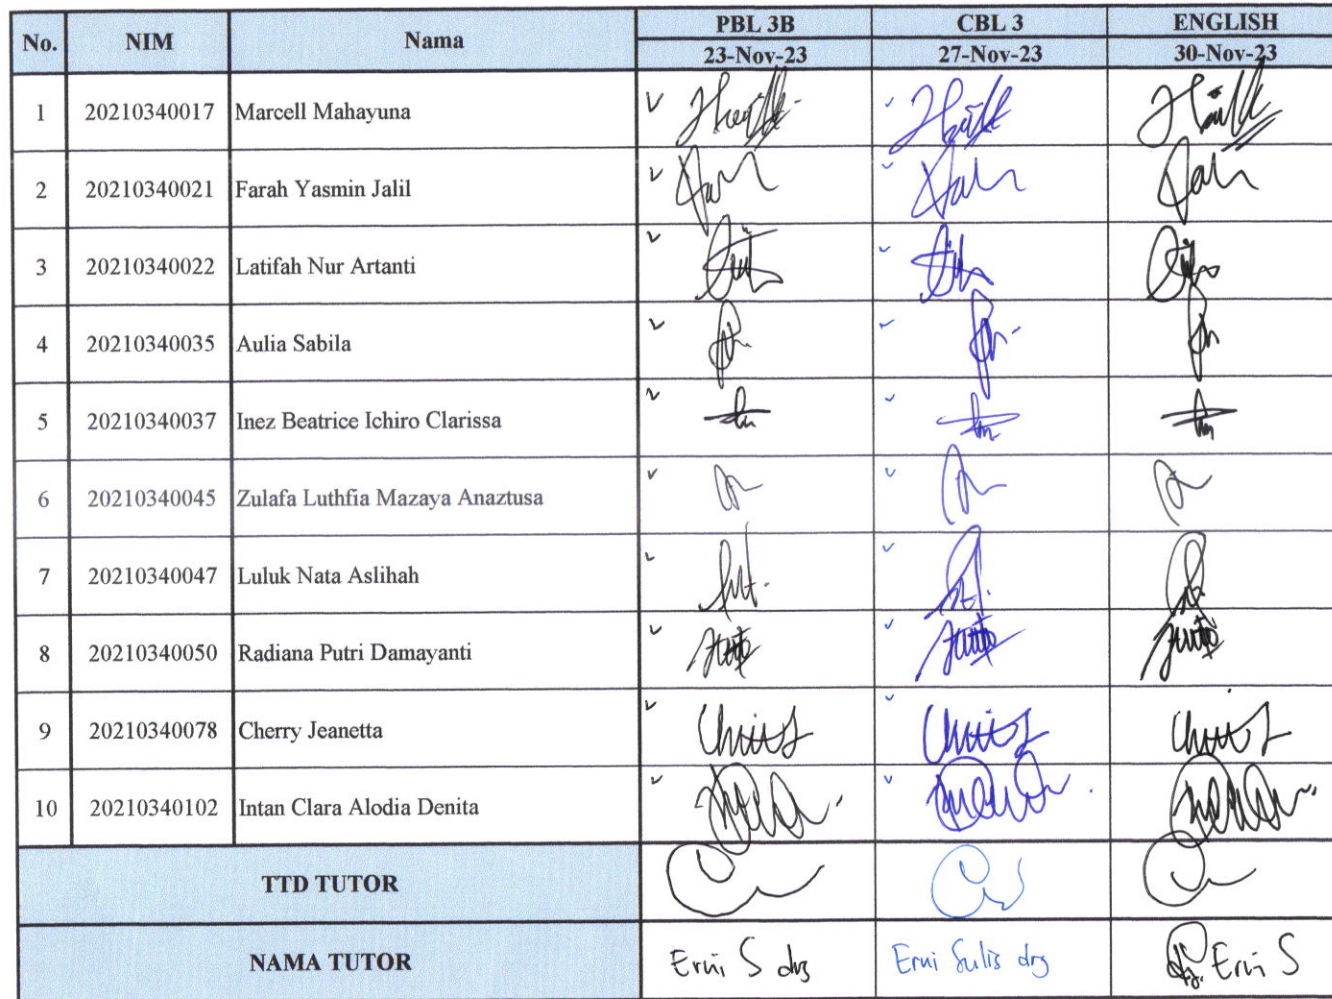 No. NIM Nama PBL 3B CBL 3 ENGLISH
23-Nov-23 27-Nov-23 30-Nov-23
1 20210340017 Marcell Mahayuna
2 20210340021 Farah Yasmin Jalil
3 20210340022 Latifah Nur Artanti
4 20210340035 Aulia Sabila
5 20210340037 Inez Beatrice Ichiro Clarissa
6 20210340045 Zulafa Luthfia Mazaya Anaztusa
7 20210340047 Luluk Nata Aslihah
8 20210340050 Radiana Putri Damayanti
9 20210340078 Cherry Jeanetta
10 20210340102 Intan Clara Alodia Denita
TTD TUTOR
NAMA TUTOR Erni S drg Erni Sulis drg drg. Erni S